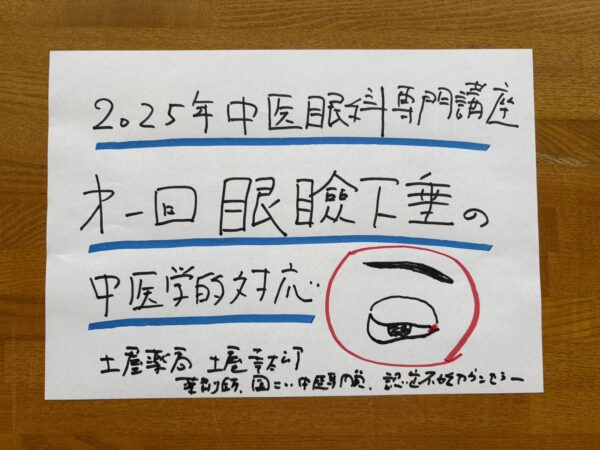 2025年中医眼科専門講座
才一回 眼瞼下垂の
中医学的対応
土屋薬局 土屋幸太郎
薬剤師、国際中医専門員、認定不妊カウンセラー